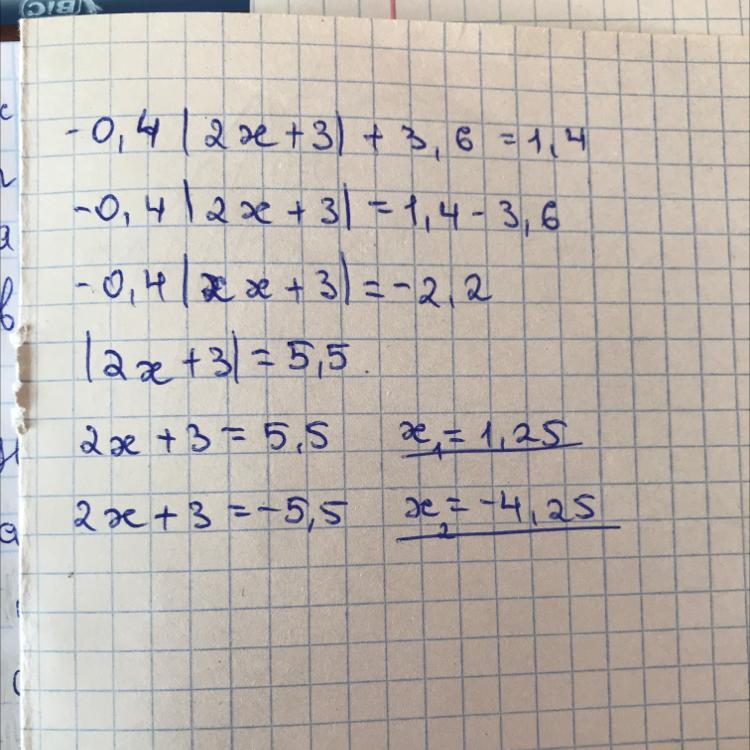 BIC
-0,4|2x+3|+3,6=1,4
-0,4|2x+3|=1,4-3,6
-0,4|xx+3|=-2,2
|2x+3|=5,5.
2x+3=5,5 x₁=1,25
2x+3=-5,5 x₂=-4,25